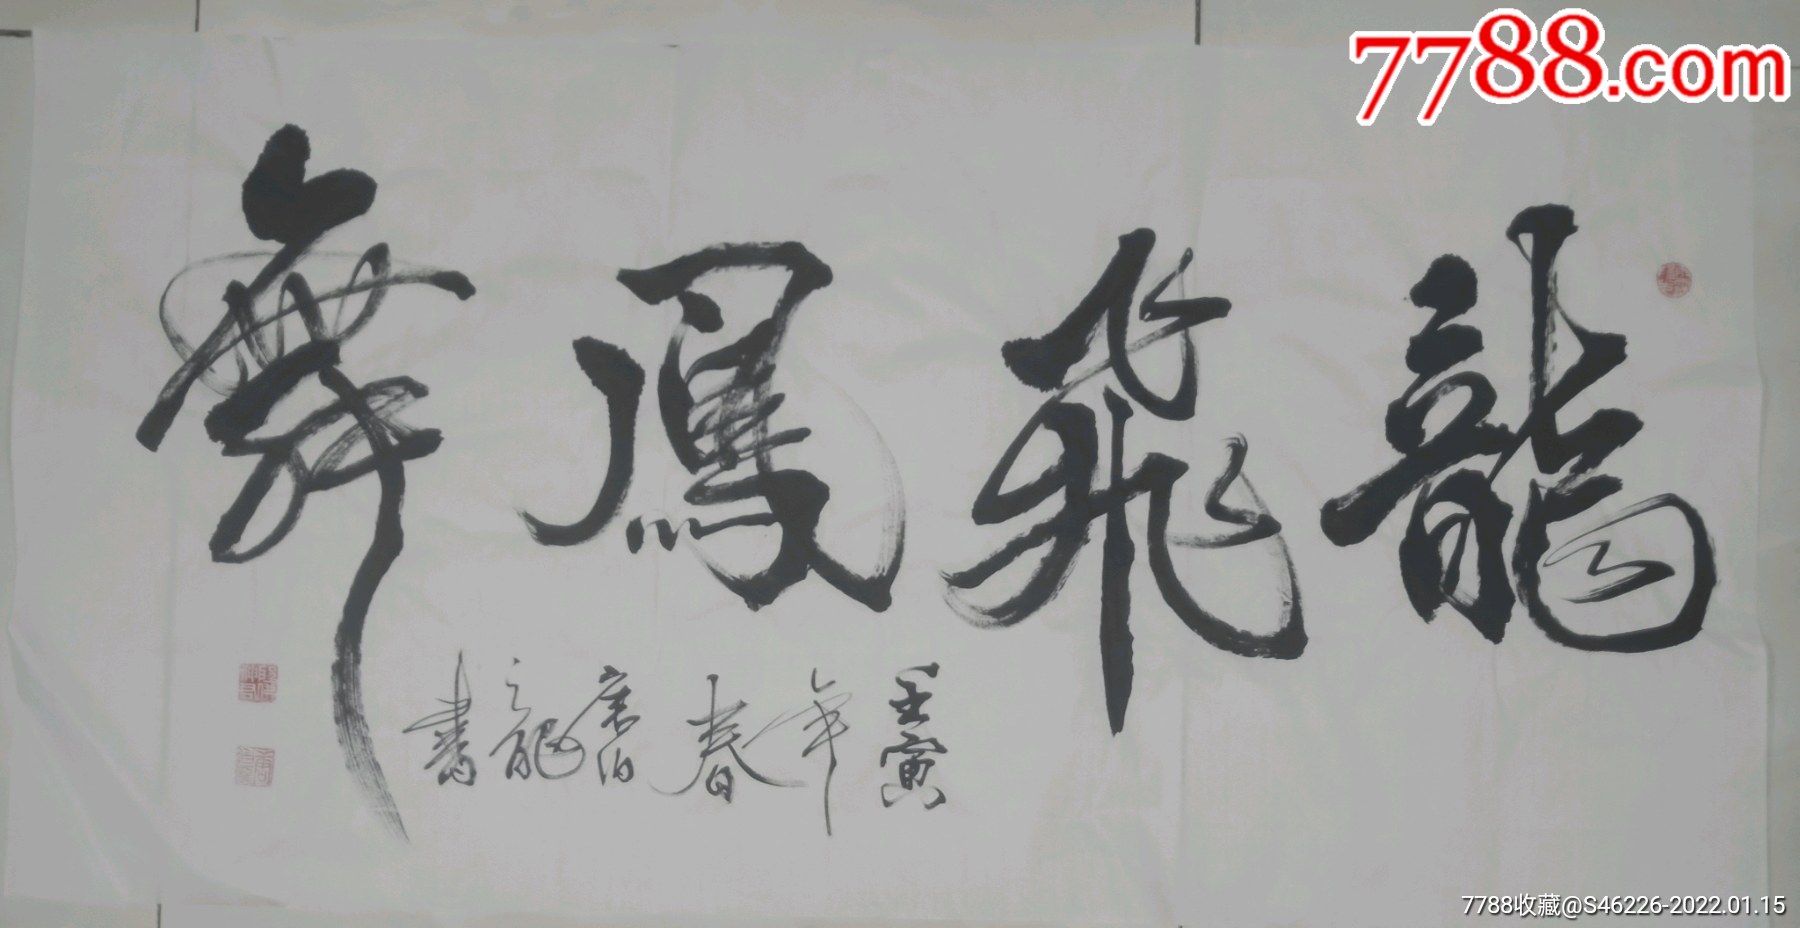 7788.com
龍飛鳳舞
壬寅
年春
龍書
7788收藏@S46226-2022.01.15